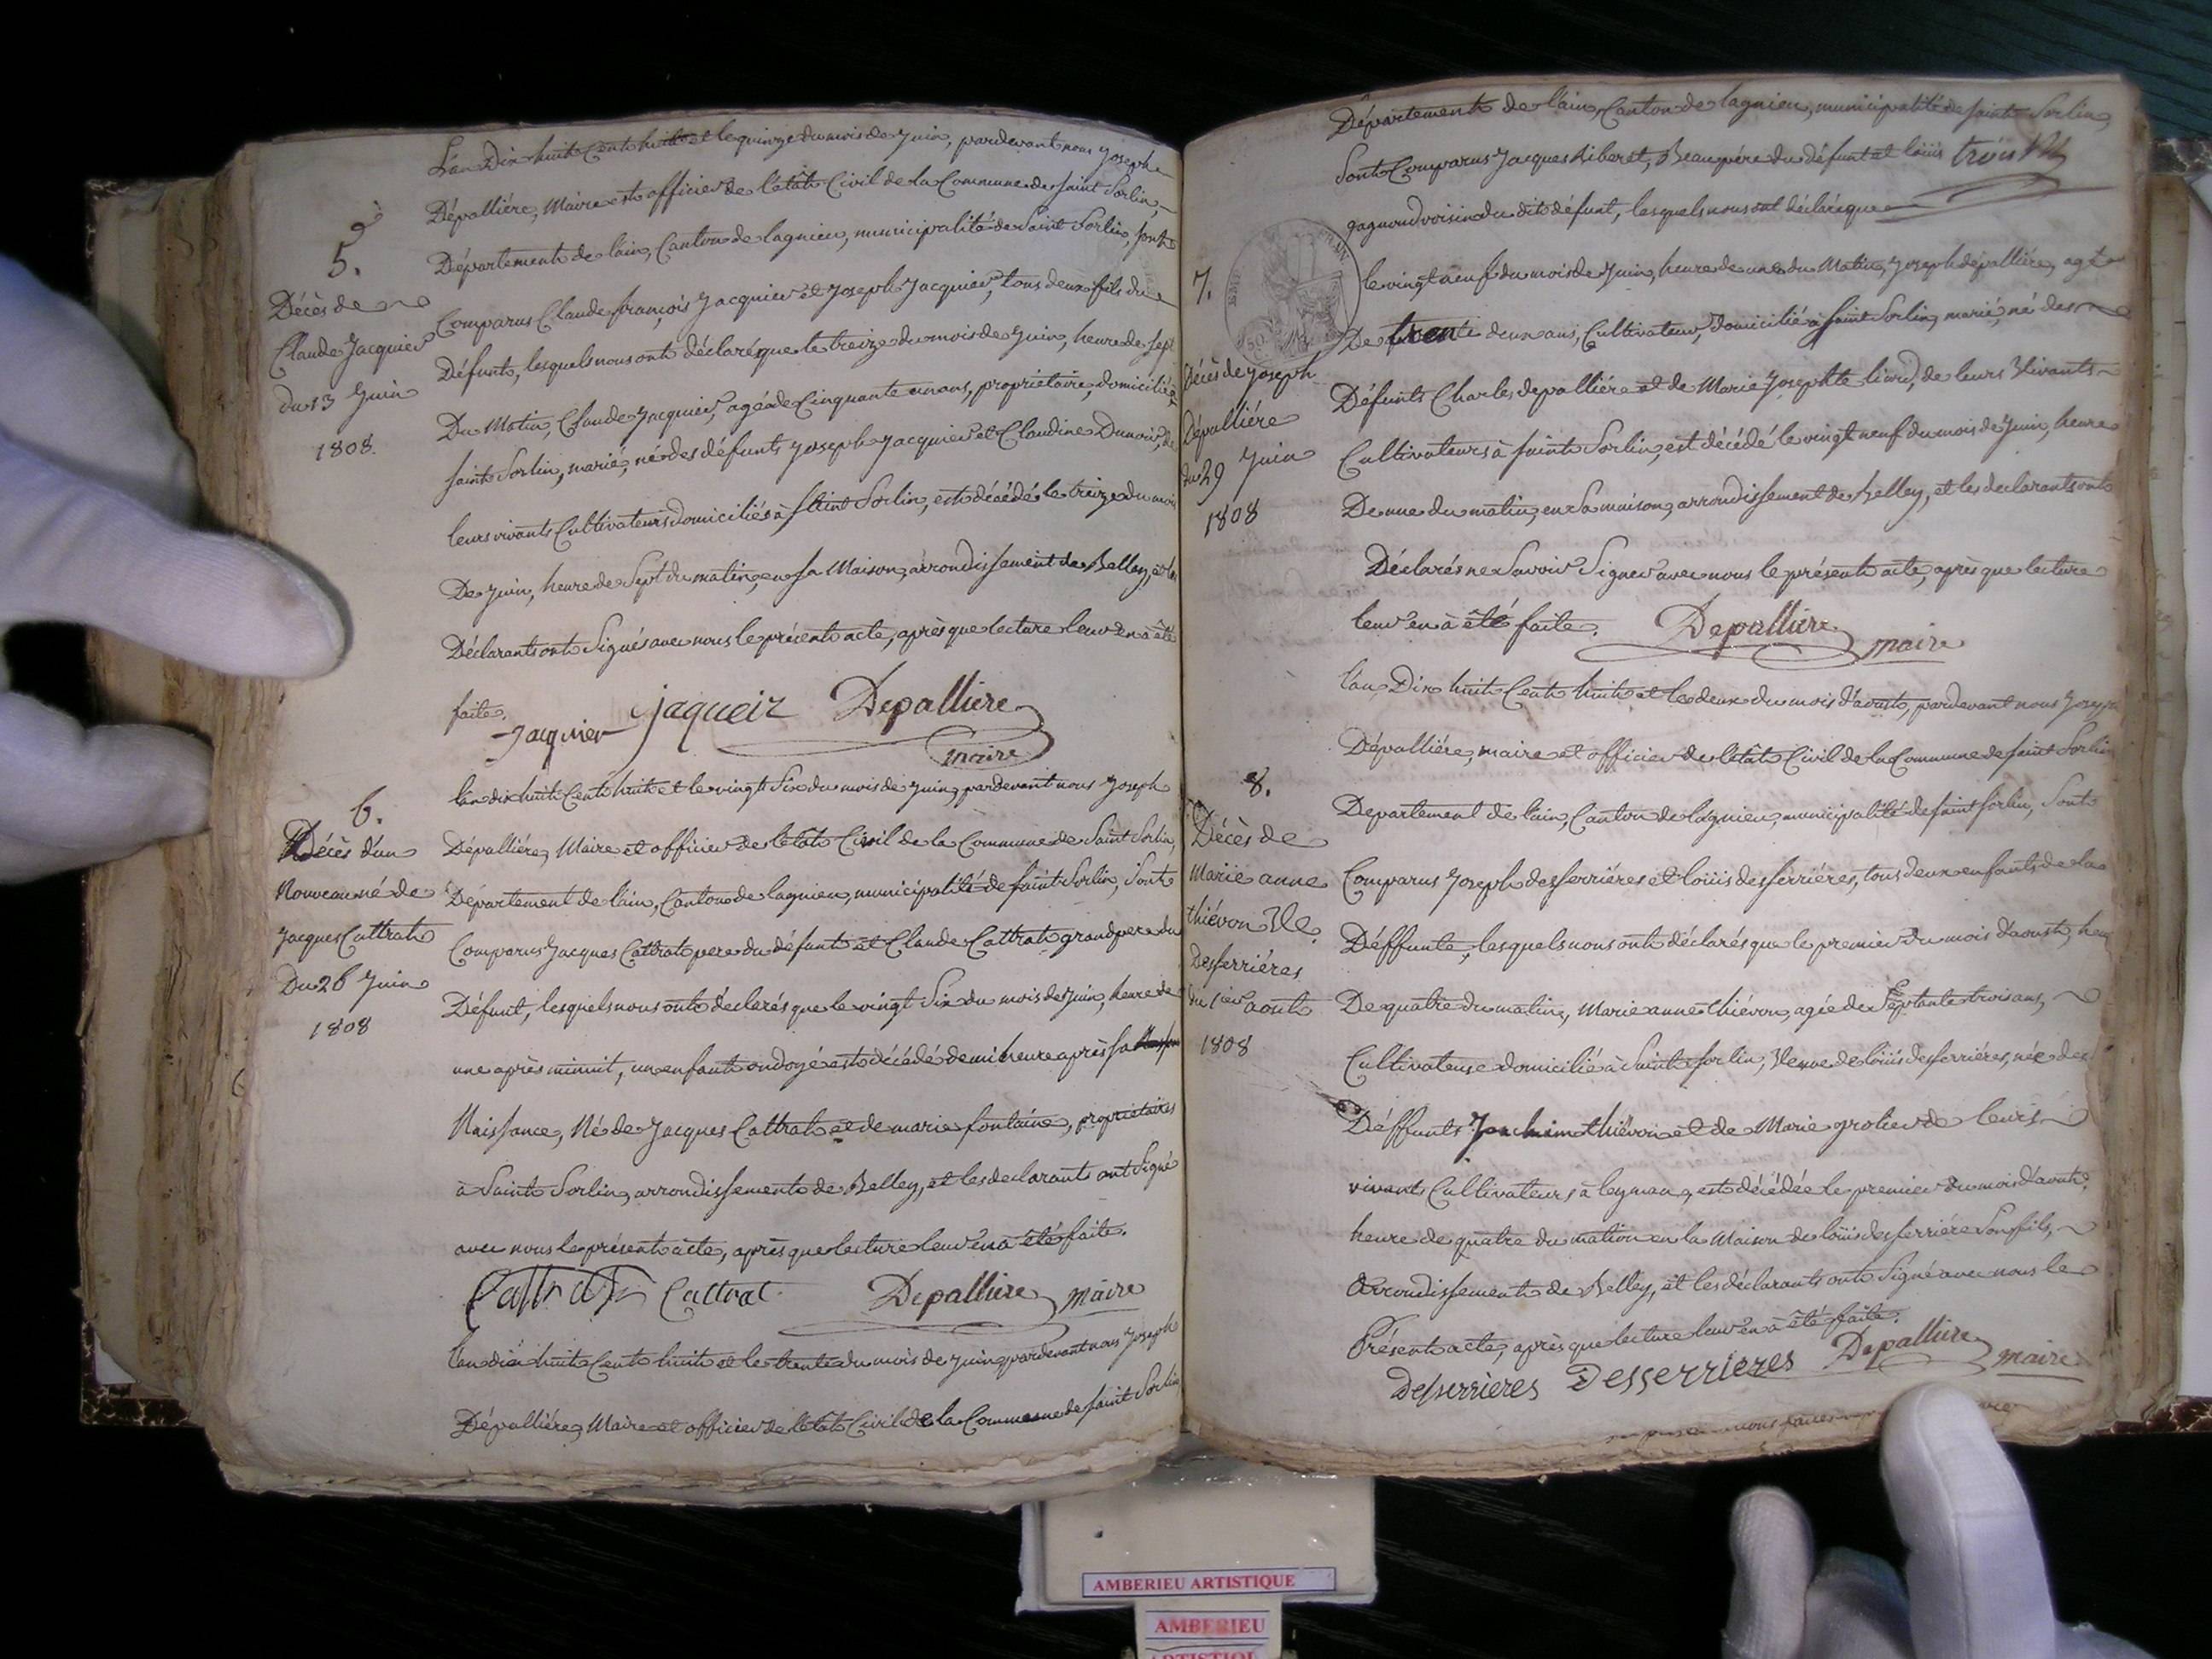 5.
Décès de
Claude Jacquier
du 13 Juin
1808.
L'an Dix huit Cent huit et le quinze du mois de Juin, pardevant nous Joseph
Dépalliére, Maire et officier de l'état Civil de la Commune de saint Sorlin,
Département de l'ain, Canton de lagnieu, municipalité de Saint Sorlin, sont
Comparus Claude françois Jacquier et Joseph Jacquier, tous deux fils du
Défunt, lesquels nous ont déclarés que le treize du mois de Juin, heure de sept
Du Matin, Claude Jacquier, agé de Cinquante un ans, propriétaire, domicilié à
saint Sorlin, marié, né des défunts Joseph Jacquier et Claudine Dunoir, de
leurs vivants Cultivateurs domiciliés à saint Sorlin, est décédé le treize du mois
De Juin, heure de Sept du matin, en sa Maison, arrondissement de Belley, et les
Déclarants ont Signés avec nous le présent acte, après que lecture leur en a été
faite.
Jacquier Jaqueir Depalliere
maire
6.
Décès d'un
Nouveau né de
Jacques Cattrat
Du 26 Juin
1808
l'an dix huit Cent huit et le vingt Six du mois de Juin, pardevant nous Joseph
Dépalliére, Maire et officier de l'état Civil de la Commune de Saint Sorlin,
Département de l'ain, Canton de lagnieu, municipalité de saint Sorlin, Sont
Comparus Jacques Cattrat pere du défunt et Claude Cattrat grand pere du
Défunt, lesquels nous ont déclarés que le vingt Six du mois de Juin, heure de
une après minuit, un enfant ondoyé est décédé demi heure après sa
Naissance, Né de Jacques Cattrat et de marie fontaine, propriétaires
à Saint Sorlin, arrondissement de Belley, et les declarants ont Signé
avec nous le présent acte, après que lecture leur en a été faite.
Cattrat Cattrat Depalliere maire
l'an dix huit Cent huit et le trente du mois de Juin, pardevant nous Joseph
Dépalliére, Maire et officier de l'état Civil de la Commune de saint Sorlin
Département de l'ain, Canton de lagnieu, municipalité de saint Sorlin,
Sont Comparus Jacques Riberet, Beaupére du défunt et loüis trois
gagnoud voisin du dit défunt, lesquels nous ont déclaré que
7.
Décès de Joseph
Dépalliére
du 29 Juin
1808
le vingt neuf du mois de Juin, heure de une du Matin, Joseph dépalliére, agé
De trente deux ans, Cultivateur, domicilié à saint Sorlin, marié, né des
Défunts Charles depalliére et de Marie Josephte liard, de leurs Vivants
Cultivateurs à saint Sorlin, est décédé le vingt neuf du mois de Juin, heure
De une du matin, en Sa maison, arrondissement de Belley, et les declarants ont
Déclarés ne Savoir Signer avec nous le présent acte, après que lecture
leur en à été faite. Depalliere maire
8.
Décès de
Marie anne
thiévon Ve
Desserriéres
du 1er aout
1808
l'an Dix huit Cent huit et le deux du mois d'aoust, pardevant nous Joseph
Dépalliére, maire et officier de l'état Civil de la Commune de saint Sorlin
Departement de l'ain, Canton de lagnieu, municipalité de saint sorlin, Sont
Comparus Joseph desserriéres et loüis desserriéres, tous deux enfants de la
Déffunte, lesquels nous ont déclarés que le premier du mois d'aoust, heure
De quatre du matin, Marie anne thiévon, agée de Septante trois ans,
Cultivateuse domicilié à Saint sorlin, Veuve de loüis desserriéres, née des
Déffunts Joachim thiévon et de Marie grolier de leurs
vivants Cultivateurs à leyman, est décédée le premier du mois d'aout,
heure de quatre du matin en la Maison de loüis desserriére Son fils,
Arrondissement de Belley, et les déclarants ont Signé avec nous le
Présent acte, après que lecture leur en à été faite.
Desserrieres Desserrieres Depalliere maire
AMBERIEU ARTISTIQUE
AMBERIEU
ARTISTIQUE